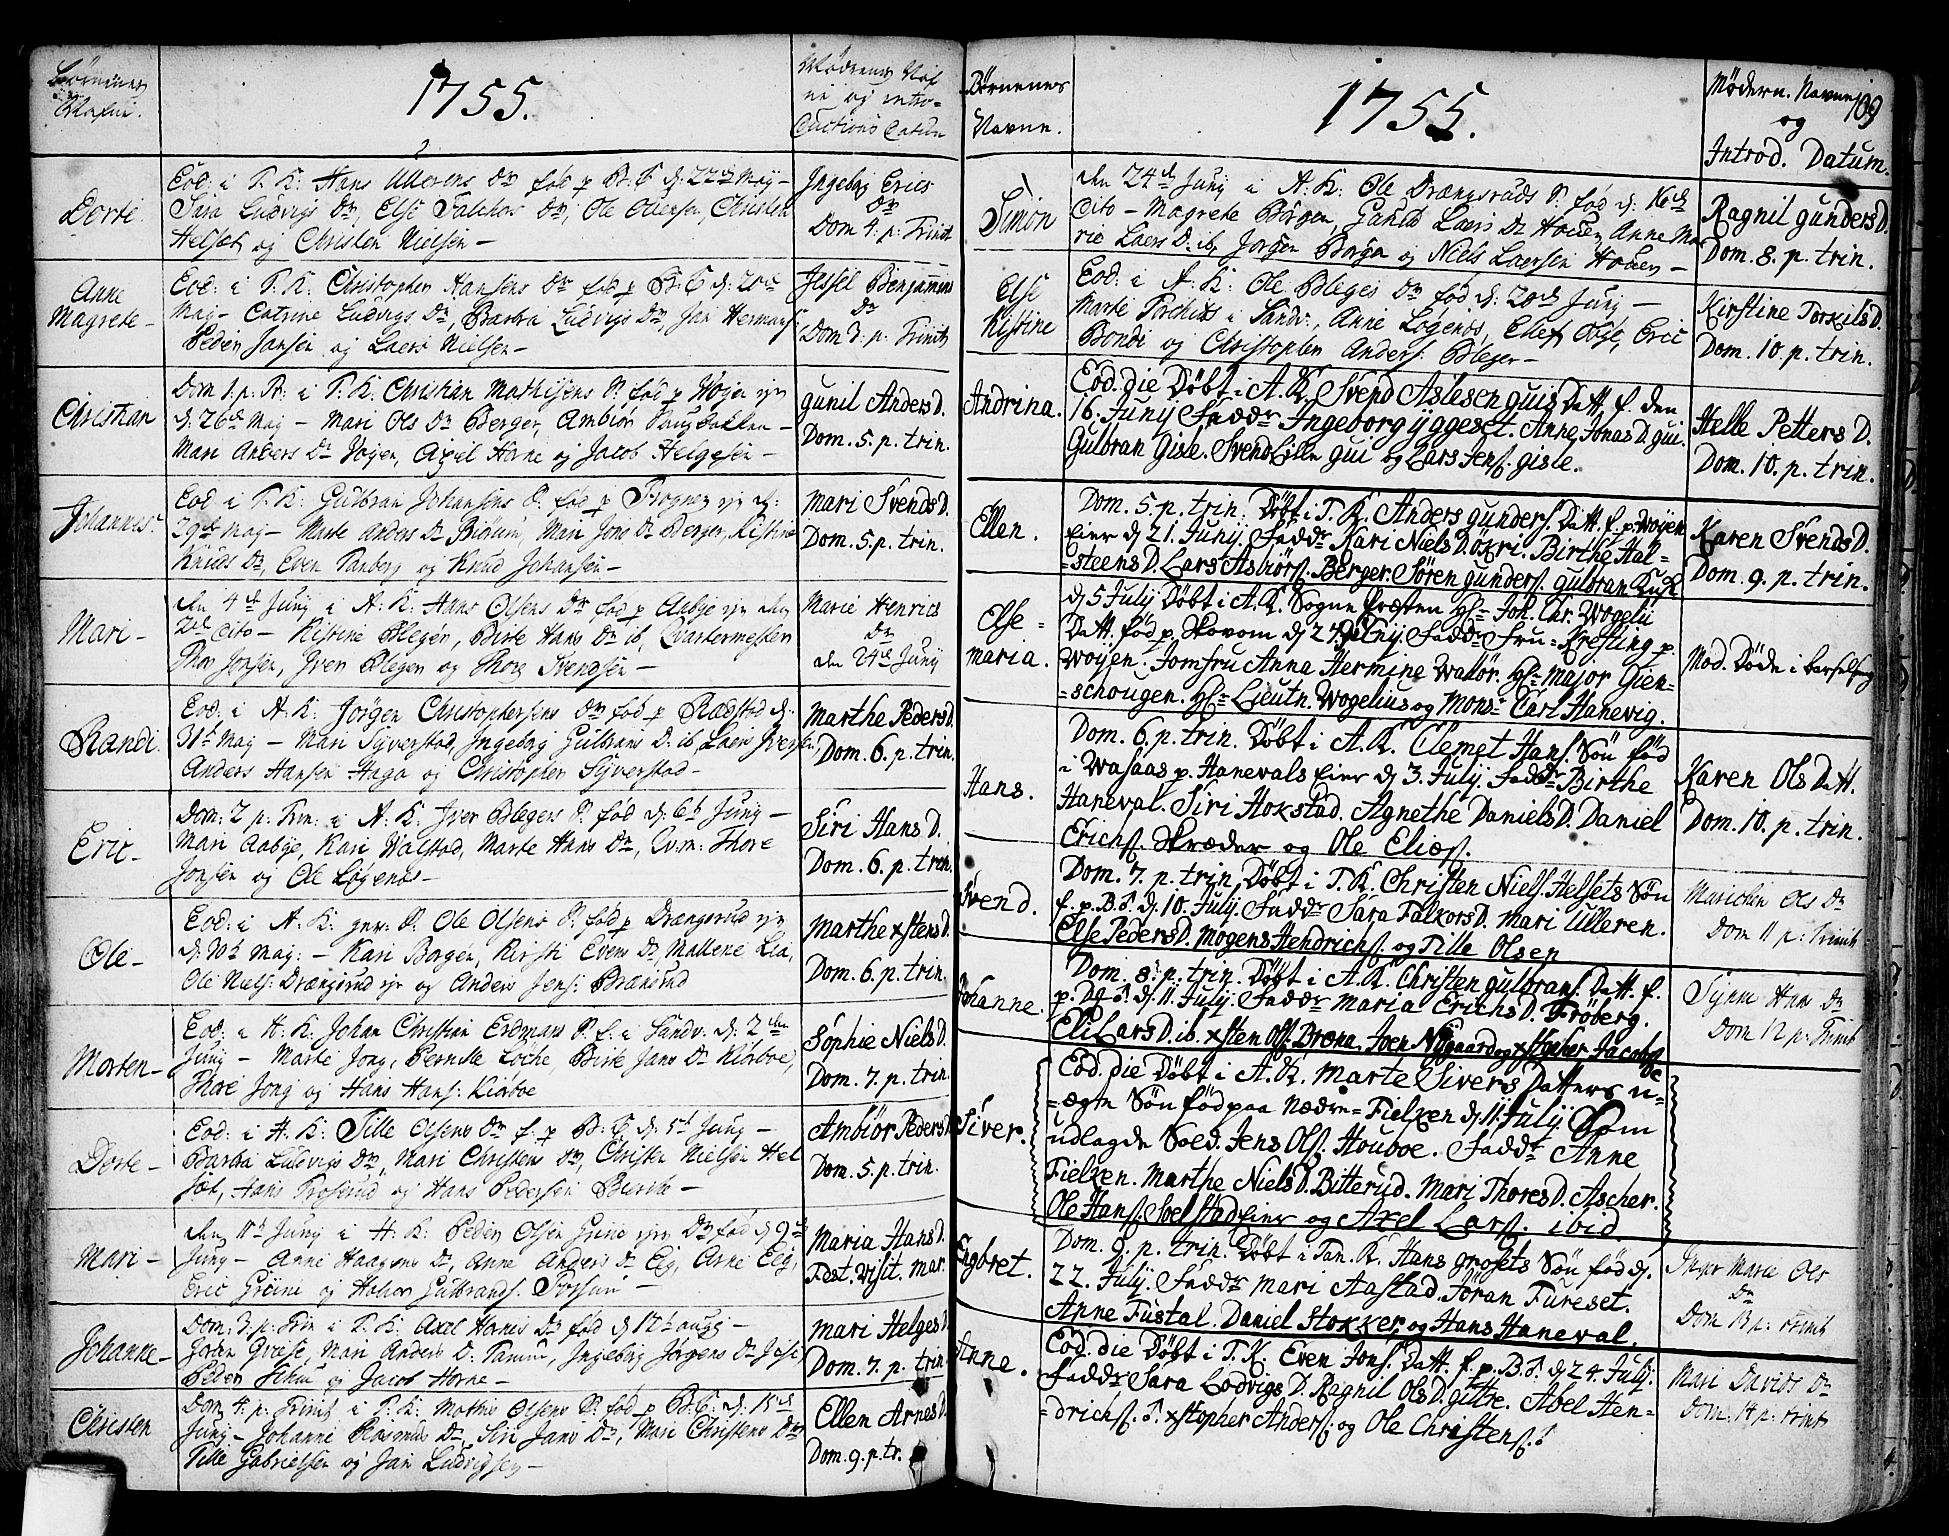 Børnenes
Nafne.
1755.
Mødrenes Naf
ne og intro-
ductions Datum
Dorte.
Eod: i T. K: Hans Ullerens Dr fød p B. T. d: 22de Maij -
Sara Ludvigs Dr, Else Falchos Dr, Ole Olersen, Christen
Helset og Christen Nielsen -
Ingeborg Erics
Dr
Dom 4. p: Trinit
Anne
Magrete -
Eod: i T. K: Christopher Hansens Dr fød p B. T. d: 20de
Maij - Catrine Ludvigs Dr, Barbra Ludvigs Dr, Jan Hermans:
Peder Jansen og Laers Nielsen -
Jessel Benjamins
Dr
Dom 3: p: Trinit
Christian
Dom 1. p. Tr: i T. K. Christian Mathisens S. fød p Wojen ejer
d: 26de Maij - Mari Ols Dr Berger, Ambiør
Mari Anders Dr Wojen, Axel Horne og Jacob Helgesen -
Gunil Anders D.
Dom. 5. p. trin.
Johannes.
Eod i T. K: Gulbran Johansens S. fød p Bogner ejer d:
29de Maij - Marte Anders Dr Mari Jons Dr Berger, Kistine
Knuds Dr, Even Tanberg og Knud Johansen -
Mari Svends D.
Dom. 5. p. trin.
Mari -
den 4de Junij i A: K: Hans Olsens Dr fød p Aabye ejer den
2de Cito - Kistine Bleger, Birte Hans Dr ib, Qvartermester
Thor Jonsen, Iver Bleger og Thore Svendsen -
Marie Henrics
Dr
den 24de Junij
Randi.
Eod: i A. K: Jørgen Christophersens Dr fød p Rædstad d:
31t Maij - Mari Syverstad, Ingeborg Gulbrans D. ib, Laers Iversen,
Anders Hansen Haga og Christopher Syverstad -
Marthe Peders D.
Dom. 6. p. trin.
Eric -
Dom: 2 p: Trin: i A. K: Iver Blegers S. fød d: 6t Junij -
Mari Aabye, Kari Wolstad, Marte Hans Dr, Qv.m: Thore
Jonsen og Ole Løgenes -
Siri Hans D.
Dom. 6. p. trin.
Ole -
Eod: i A. K: S. Ole Olsens S. fød p Drængerud ejer
Maij: - Kari Borgen, Kirsti Evens Dr, Mallene Lia,
Ole Niels: Drængsrud ejer og Anders Jens: Brænsrud
Marthe xstens D.
Dom. 6. p. trin.
Morten -
Eod: i A. K: Johan Christian Erdmans S. f. i Sandv. d: 2den
Junij - Marte Jong, Bernte Løche, Birte Jans Dr Kiørboe,
Thore Jong og Hans Hans: Kiørboe
Sophie Niels D.
Dom. 7. p. trin.
Dorte -
Eod: i A: K: Tille Olsens Dr f. p B. T. d: 5t Junij -
Barbra Ludvigs Dr, Mari Christens Dr, Christen Nielsen Hel
set, Hans Troserud og Hans Pedersen Blerike -
Ambiør Peders D.
Dom. 5. p. trin.
Mari -
den 11t Junij i A: K: Peder Olsen Grine ejer Dr fød d 9de
Junij - Anne Haagens Dr, Anne Anders Dr Eig, Arne Eig,
Eric Griine og Halvor Gulbrands.
Maria Hans D.
Fest. visit. mar.
Johanne -
Dom: 3. p: Trin i T. K: Axel Hornes Dr fød d 12t
Goren Græse, Mari Anders D: Tanum, Ingeborg Jørgens Dr
Peder og Jacob Horne -
Mari Helges D.
Dom. 7. p. trin
Christen
Dom: 4. p: Trinit i T. K: Mathis Olsens S. fød p B. T. d: 15de
Junij - Johanne Rasmus Dr, Siri Jans Dr, Mari Christens Dr
Tille Gabrielsen og Jan Ludvigsen -
Ellen Arnes D.
Dom. 9. p. tr.
Børnenes
Navne.
1755.
Mødern. Navne
109
og
Introd. Datum.
Simon
den 24de Junij i A: K: Ole Drængsruds S. fød d: 16de
Cito - Magrete Borgen, Gunild Laers Dr Houen, Anne Ma
rie Laers D. ib, Jørgen Borgen og Niels Laersen Houen -
Ragnil Gunders D.
Dom. 8. p. trin.
Else
Kistine
Eod: i A. K: Ole Bleges Dr fød d: 20de Junij -
Marte Torchilds i Sandv:, Anne Løgenes, Ellef Eric
Bondi og Christopher Anders: Bleger -
Kirstine Torkils D.
Dom. 10. p. trin.
Andrina.
Eod. die Døbt i A. K. Svend Aslesen guis Datt. f. den
16. Junij Faddr Ingeborg Yggeset. Anne Jonas D. gui.
Gulbran Gisle. Svend Lille gui og Lars Jens. gisle.
Helle Petters D.
Dom. 10. p. trin.
Ellen.
Dom. 5. p. trin. Døbt i T. K. Anders Gunders. Datt. f. p. Woyen
Eier d 21. Junij. Faddr Kari Niels D. Okri. Birthe Hal=
=steens D. Lars Asbiørs. Berger. Søren Gunders. Gulbran Kusk
Karen Svends D.
Dom. 9. p. trin.
Else =
maria.
d 5 Julij Døbt i A. K. Sogne Præsten Hr= Joh. Chr. Wogelii
Datt. fød p. Skovom d 24 Junij. Faddr Fru= Kresting p.
Woyen. Jomfru Anna Hermine Walør. Hr= Major Gien=
=schougen. Hr= Lieutn. Wogelius og Monsr Carl Hanevig.
Mod. Døde i barselseng
Hans.
Dom. 6. p. trin. Døbt i A. K. Clemet Hans. Søn fød
i Wasaas p. Hanevals Eier d 3. Julij. Faddr Birthe
Haneval. Siri Hokstad. Agnethe Daniels D. Daniel
Erichs. Skræder og Ole Elies.
Karen Ols Datt.
Dom. 10. p. trin.
Svend.
Dom. 7. p. trin. Døbt i T. K. Christen Niels. Helsets Søn
f. p. B. T. d. 10. Julij. Faddr Sara Falkors D. Mari Ulleren.
Else Peders D. Mogens Hendrichs. og Tille Olsen
Marichen Ols Dr
Dom 11 p: Trinit
Johanne.
Dom. 8. p. trin. Døbt i A. K. Christen Gulbrans. Datt. f.
p. B. T. d. 11. Julij. Faddr Maria Erichs D. Frøberg.
Eli Lars D. ib. xsten Ols. Bræna. Joen Nygaard og xstopher Jacobs.
Synne Hans Dr
Dom 12 p: Trinit
Siver.
Eod. die Døbt i A. K. Marte Sivers Datters u=
=ægte Søn fød paa Nædre= Fielken d 11 Julij. Som
udlagde Soed. Jens Ols. Houboe. Faddr Anne
Fielken. Marthe Niels D. Bitterud. Mari Thores D. Ascher.
Ole Hans. Solstad Eier og Axel Lars. ibid.
Engbret.
Dom. 9. p. trin. Døbt i Tan. K. Hans Grosets Søn fød d.
22. Julij. Faddr Mari Aastad. Jøran Fureset.
Anne Fustal. Daniel Stokker og Hans Haneval.
Inger Marie Ols
Dr
Dom 13 p: trinit
Anne.
Eod. die Døbt i T. K. Even Jons. Datt. f. p. B. T. d 24. Julij.
Faddr Sara Lodvigs D. Ragnil Ols D. Gitte. Abel Hen=
=drichs. T. xstopher Anders. og Ole Christens.
Mari Davids Dr
Dom: 14 p: trinit